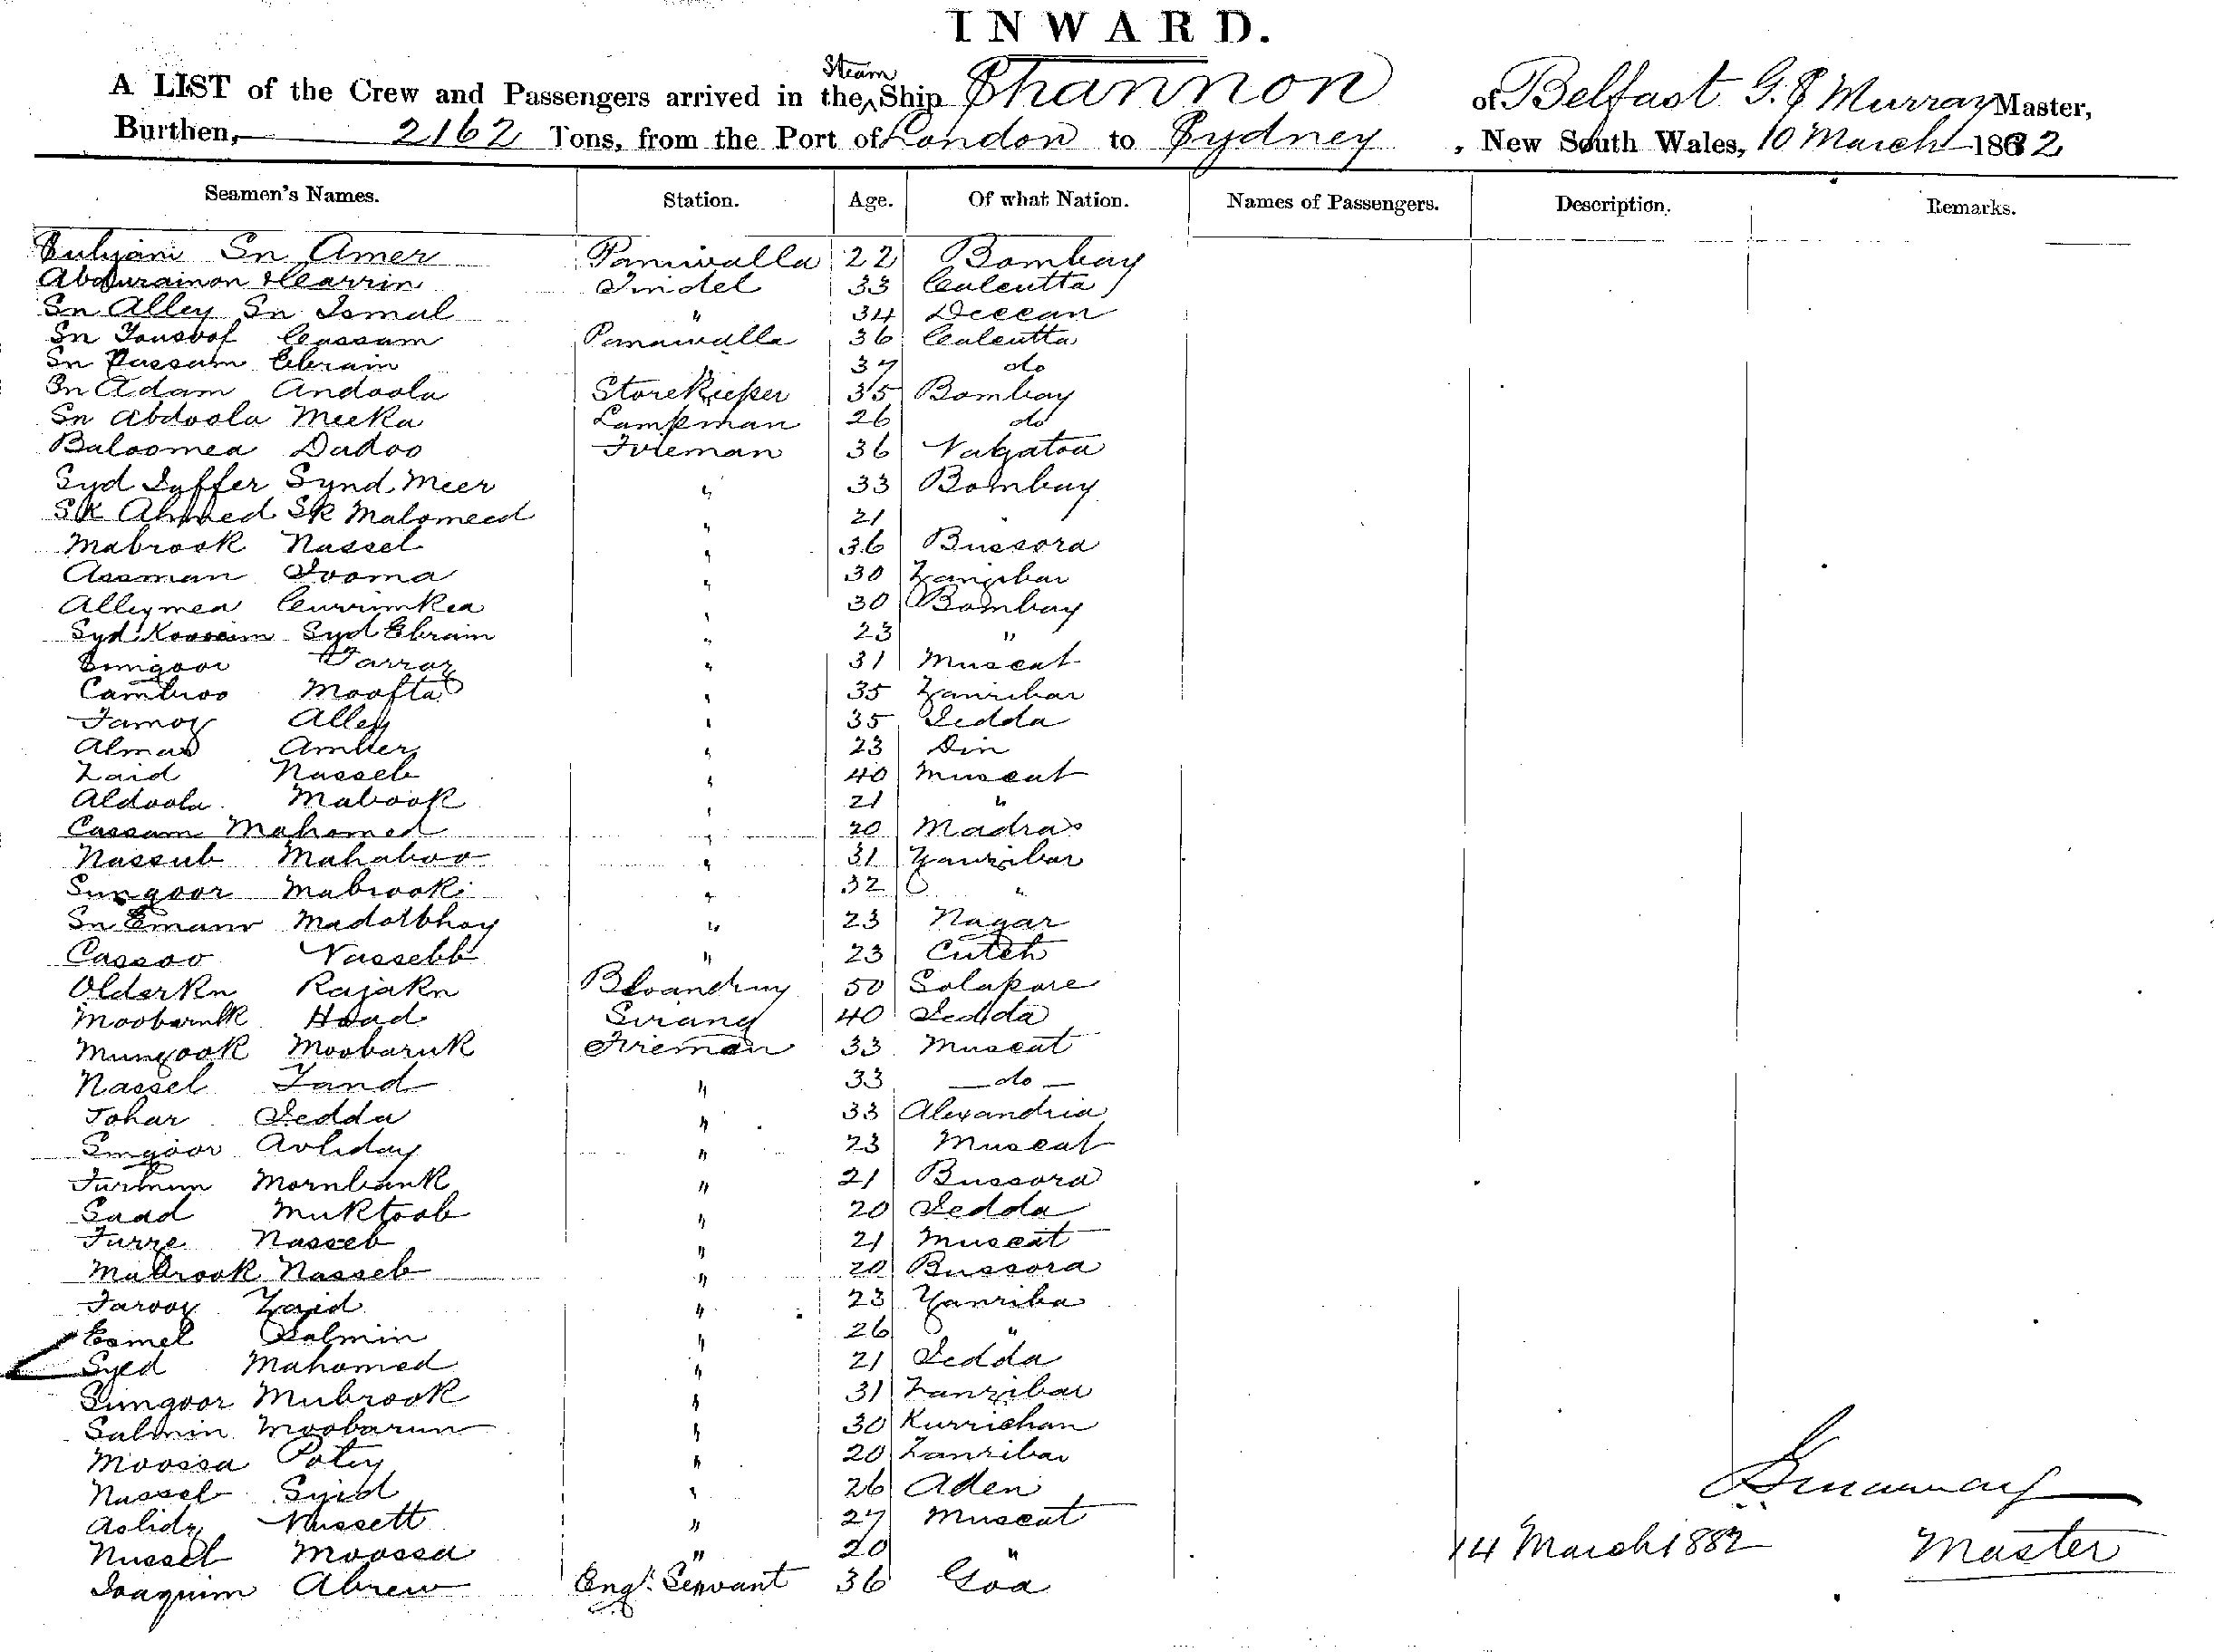 INWARD.
A LIST of the Crew and Passengers arrived in the Steam Ship Shannon of Belfast G. F Murray Master,
Burthen, 2162 Tons, from the Port of London to Sydney, New South Wales, 10 March 1882
Seamen's Names. Station. Age. Of what Nation. Names of Passengers. Description. Remarks.
Sn Amer Paniwalla 22 Bombay
Tindel 33 Calcutta
Sn Alley Sn Ismal " 34 Deccan
Sn Yousoof Cassam Panawalla 36 Calcutta
Sn Ebraim " 37 do
Sn Adam Andoola Storekeeper 35 Bombay
Sn Abdoola Meeka Lampman 26 do
Baloomea Dadoo Fireman 36
Syd Jaffer Synd Meer " 33 Bombay
SK Ahmed SK Malomeed " 21 "
Mabrook Nassel " 36 Bussora
Assman Jooma " 30 Zanzibar
Alleymea Currimkea " 30 Bombay
Syd Kosseim Syd Ebraim " 23 "
Farraz " 31 Muscat
Cambroo Moofta " 35 Zanzibar
Famoz Alley " 35 Jedda
Almas Amber " 23 Din
Zaid Nasseb " 40 Muscat
Aldoola Mabook " 21 "
Cassam Mahomed " 20 Madras
Nassub Mahaboo " 31 Zanzibar
Sungoor Mabrook " 32 "
Sn Emam Madotbhoy " 23 Nagar
Cassoo Nassebb " 23 Cutch
Olderkn Rajakn 50 Solapore
Moobaruk Serang 40 Jedda
Mungook Moobaruk Fireman 33 Muscat
Nassel Zand " 33 do
Johar Jedda " 33 Alexandria
Sngoor Avliday " 23 Muscat
Mornbank " 21 Bussora
Saad Muktoob " 20 Jedda
Furze Nasseb " 21 Muscat
Mabrook Nasseb " 20 Bussora
Farooz Zaid " 23 Zanziba
Esmel Salmin " 26 "
Syed Mahomed " 21 Jedda
Sungoor Mubrook " 31 Zanzibar
Salmin Moobarun " 30 Kurrichan
Moossa " 20 Zanzibar
Nassel Syid " 26 Aden
Aslidz Nussett " 27 Muscat
Nussel Moossa " 20 " 14 March 1882 Master
Joaquim Abrew Engr. Servant 36 Goa